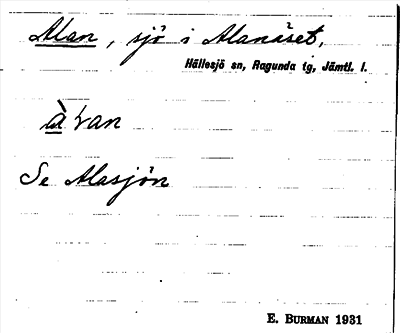 Alan, sjö i Alanäset,
Hällesjö sn, Ragunda tg, Jämtl. l.
Se Alasjön
E. BURMAN 1931